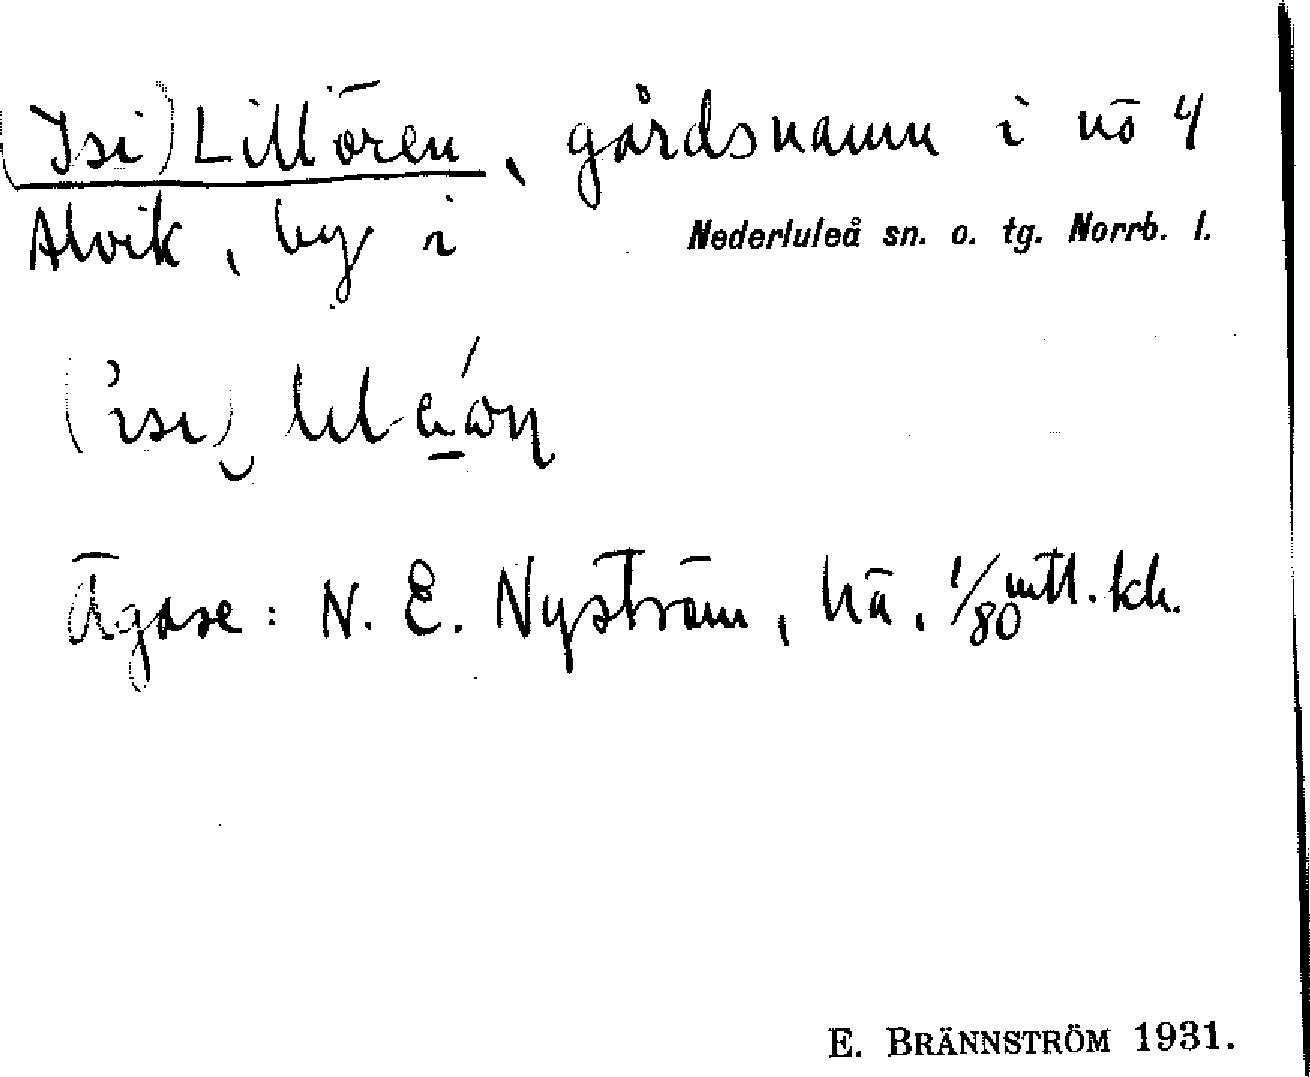 (Isi) Lillören, gårdsnamn i nö 4
Alvik, by i Nederluleå sn. o. tg. Norrb. l.
Ägare: N. E. Nyström, hä. 1/80 mtl. kr.
E. BRÄNNSTRÖM 1931.